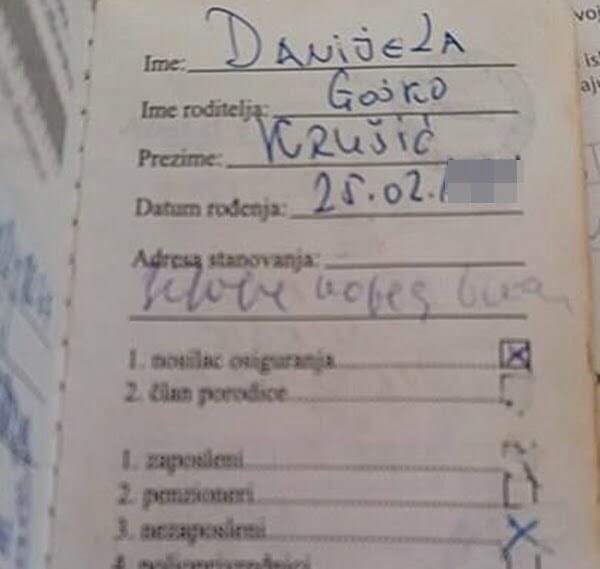 Ime: DANIJELA
Ime roditelja: GOJKO
Prezime: KRUŠIĆ
Datum rođenja: 25.02.
Adresa stanovanja:
1. nosilac osiguranja
2. član porodice
1. zaposleni
2. penzioneri
3. nezaposleni
4. poljoprivrednici